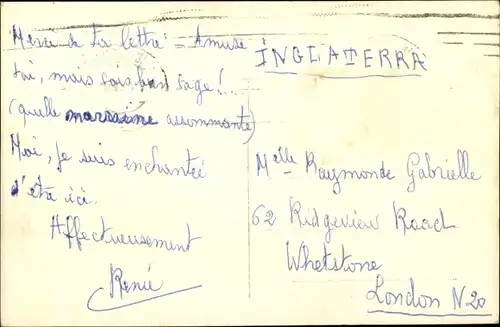 Merci de ta lettre - Amuse
toi, mais sois bien sage!...
(quelle marraine assommante)
Moi, je suis enchantée
d'être ici.
Affectueusement
Renée
INGLATERRA
Melle Raymonde Gabrielle
62 Ridgeview Road
Whetstone
London N20